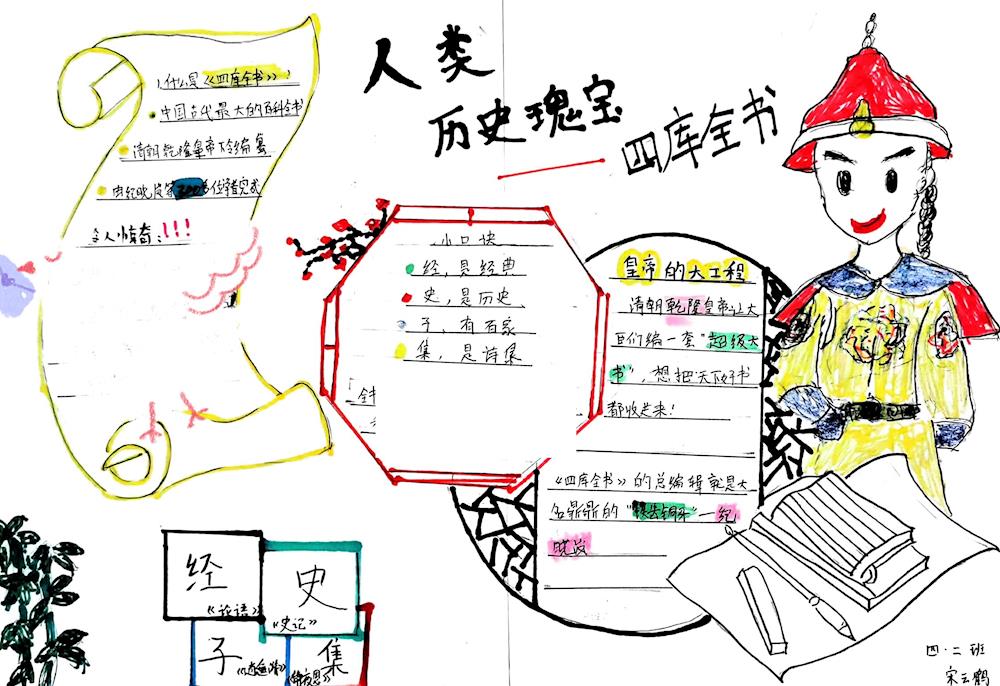 人类
历史瑰宝
四库全书
1.什么是《四库全书》?
中国古代最大的百科全书
清朝乾隆皇帝下令编纂
由纪晓岚等 多位学者完成
令人惊奇:!!!
小口诀
经,是经典
史,是历史
子,有百家
集,是诗集
全书
皇帝的大工程
清朝乾隆皇帝让大
臣们编一套"超级大
书",想把天下好书
都收进来!
《四库全书》的总编辑就是大
名鼎鼎的"铁齿铜牙"—纪
晓岚
经
《论语》
史
《史记》
子
集
四·二班
宋云鹤